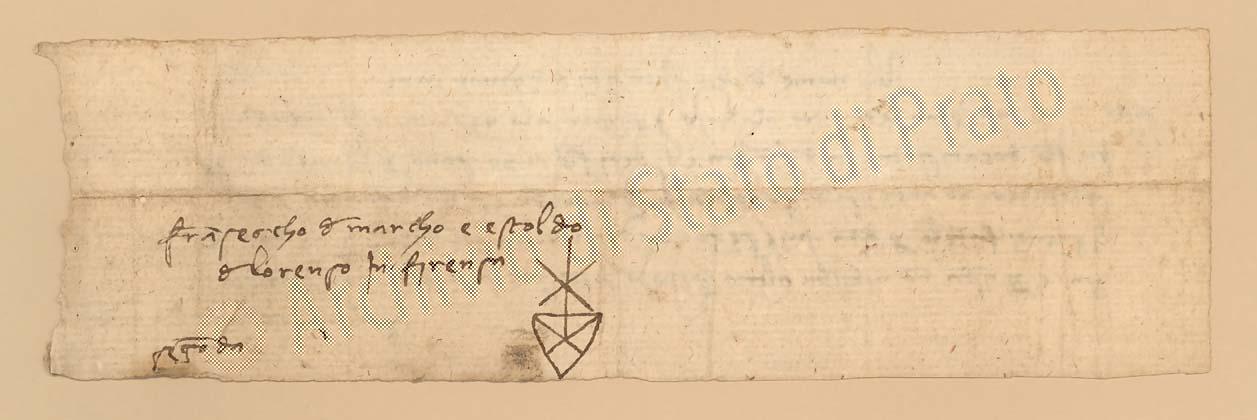 fransescho d marcho e estoldo
d lorenso in firenso
segonda
© Archivio di Stato di Prato